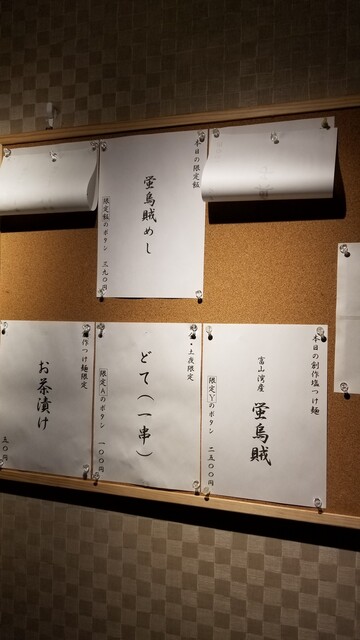 本日の限定飯
蛍烏賊めし
限定飯のボタン 三九〇円
本日の創作塩つけ麺
富山湾産
蛍烏賊
限定Yのボタン 二五〇〇円
・土夜限定
どて(一串)
限定Aのボタン 一〇〇円
作つけ麺限定
お茶漬け
五〇円